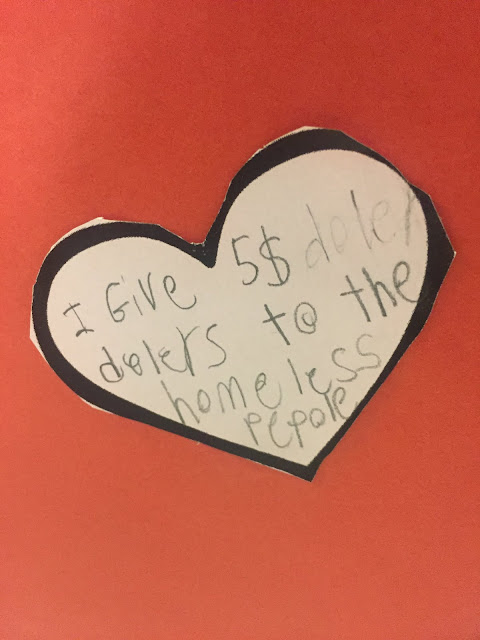 I Give 5$ doler
dolers to the
homeless
pepole